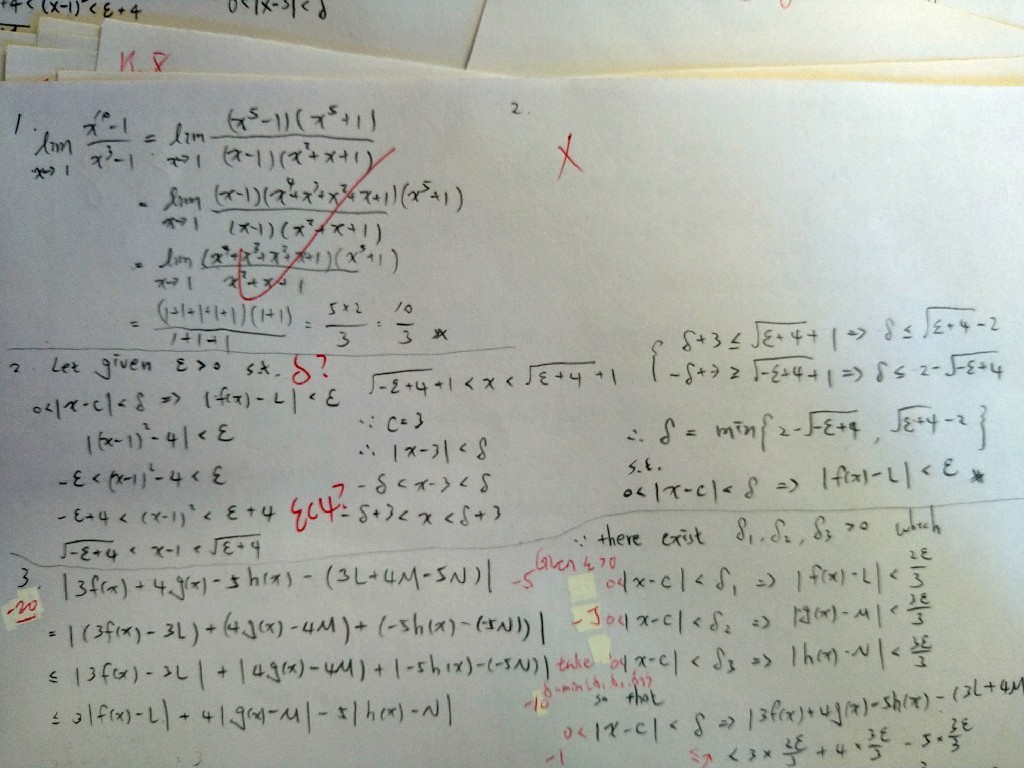 +4 < (x-1)² < ε+4
0<|x-3|<δ
K.8
1. lim x→1 (x¹⁰-1)/(x³-1) = lim x→1 (x⁵-1)(x⁵+1) / (x-1)(x²+x+1)
= lim x→1 (x-1)(x⁴+x³+x²+x+1)(x⁵+1) / (x-1)(x²+x+1)
= lim x→1 (x⁴+x³+x²+x+1)(x⁵+1) / x²+x+1
= (1+1+1+1+1)(1+1) / 1+1+1 = 5×2/3 = 10/3
2.
2. Let given ε>0 s.t. δ?
0<|x-c|<δ => |f(x)-L|<ε
|(x-1)²-4|<ε
-ε<(x-1)²-4<ε
-ε+4 < (x-1)² < ε+4 ε<4?
√-ε+4 < x-1 < √ε+4
√-ε+4 +1 < x < √ε+4 +1
∵ c=3
∴ |x-3|<δ
-δ<x-3<δ
-δ+3<x<δ+3
{ δ+3 ≤ √ε+4 +1 => δ ≤ √ε+4 -2
-δ+3 ≥ √-ε+4 +1 => δ ≤ 2-√-ε+4
∴ δ = min{2-√-ε+4, √ε+4 -2}
s.t.
0<|x-c|<δ => |f(x)-L|<ε
3.
-20
|3f(x)+4g(x)-5h(x)-(3L+4M-5N)|
= |(3f(x)-3L)+(4g(x)-4M)+(-5h(x)-(-5N))|
≤ |3f(x)-3L|+|4g(x)-4M)+|-5h(x)-(-5N)|
≤ 3|f(x)-L|+4|g(x)-M|-5|h(x)-N|
∵ there exist δ₁, δ₂, δ₃ >0 which
Given ε>0
-5 0<|x-c|<δ₁ => |f(x)-L|< 2ε/3
-5 0<|x-c|<δ₂ => |g(x)-M|< 3ε/3
take 0<|x-c|<δ₃ => |h(x)-N|< 3ε/3
δ=min(δ₁,δ₂,δ₃)
-10 so that
0<|x-c|<δ => |3f(x)+4g(x)-5h(x)-(3L+4M
-1 < 3×2ε/3 + 4×3ε/3 - 5×3ε/3